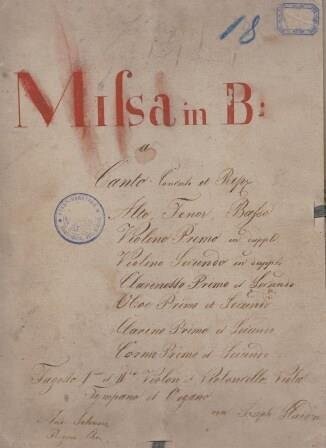 18
Missa in B:
a
Canto Concerto et Rip
Alto, Tenor, Basso
Violino Primo in duppl
Violino Secundo in duppl
Clarinetto Primo et Secundo
Oboe Primo et Secundo
Clarino Primo et Secundo
Corno Primo et Secundo
Fagotto 1mo et IIdo Violon et Violoncello, Viola
Tympano et Organo
von Joseph Haydn